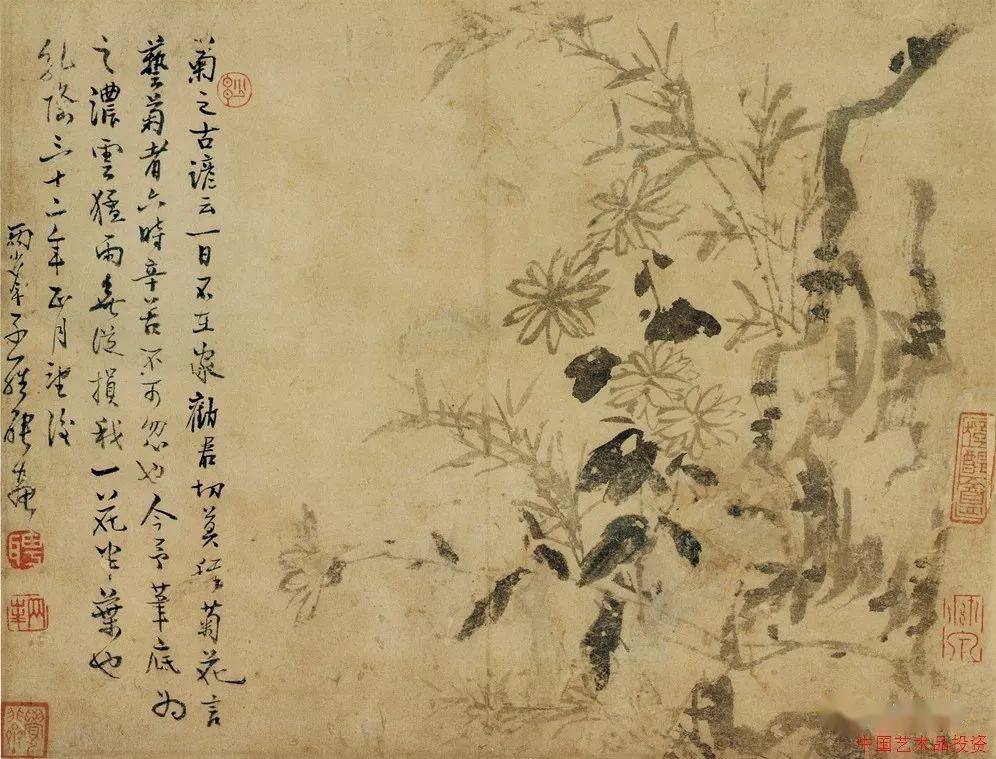 菊之古諺云一日不在家勸君切莫種菊花言
藝菊者六時辛苦不可忽也今予筆底為
之濃雲猛雨無從損我一花半葉也
乾隆三十二年正月望後
兩峯子羅聘
聘
中国艺术品投资